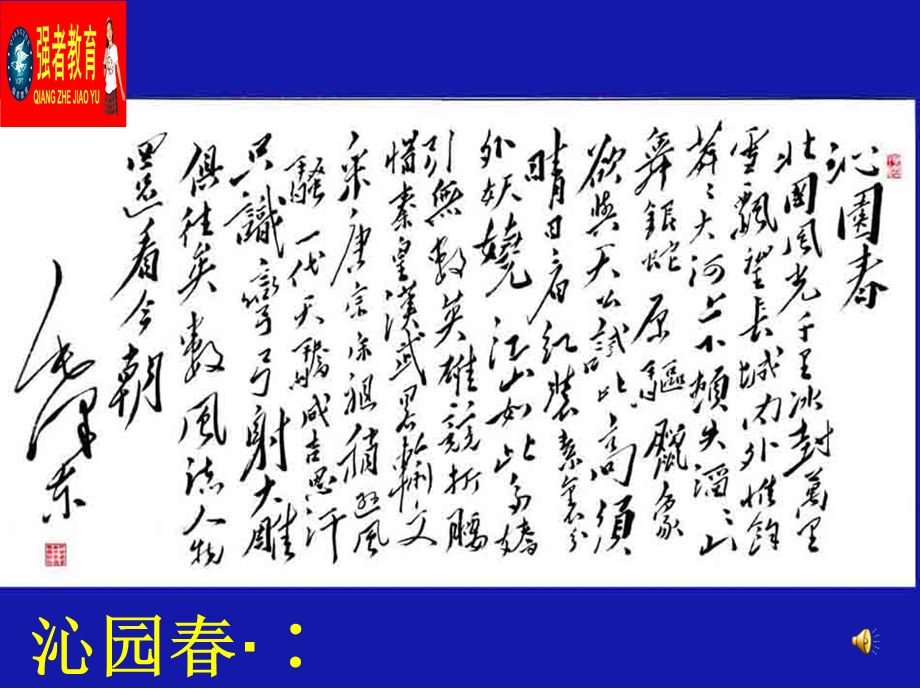 强者教育
QIANG ZHE JIAO YU
沁園春
北國風光千里冰封萬里
雪飄望長城內外惟餘
莽々大河上下頓失滔々山
舞銀蛇原驅臘象
欲與天公試比高須
晴日看紅裝素裹分
外妖嬈江山如此多嬌
引無數英雄競折腰
惜秦皇漢武略輸文
采唐宗宋祖稍遜風
騷一代天驕成吉思汗
只識彎弓射大雕
俱往矣數風流人物
還看今朝
毛澤東
沁园春·：